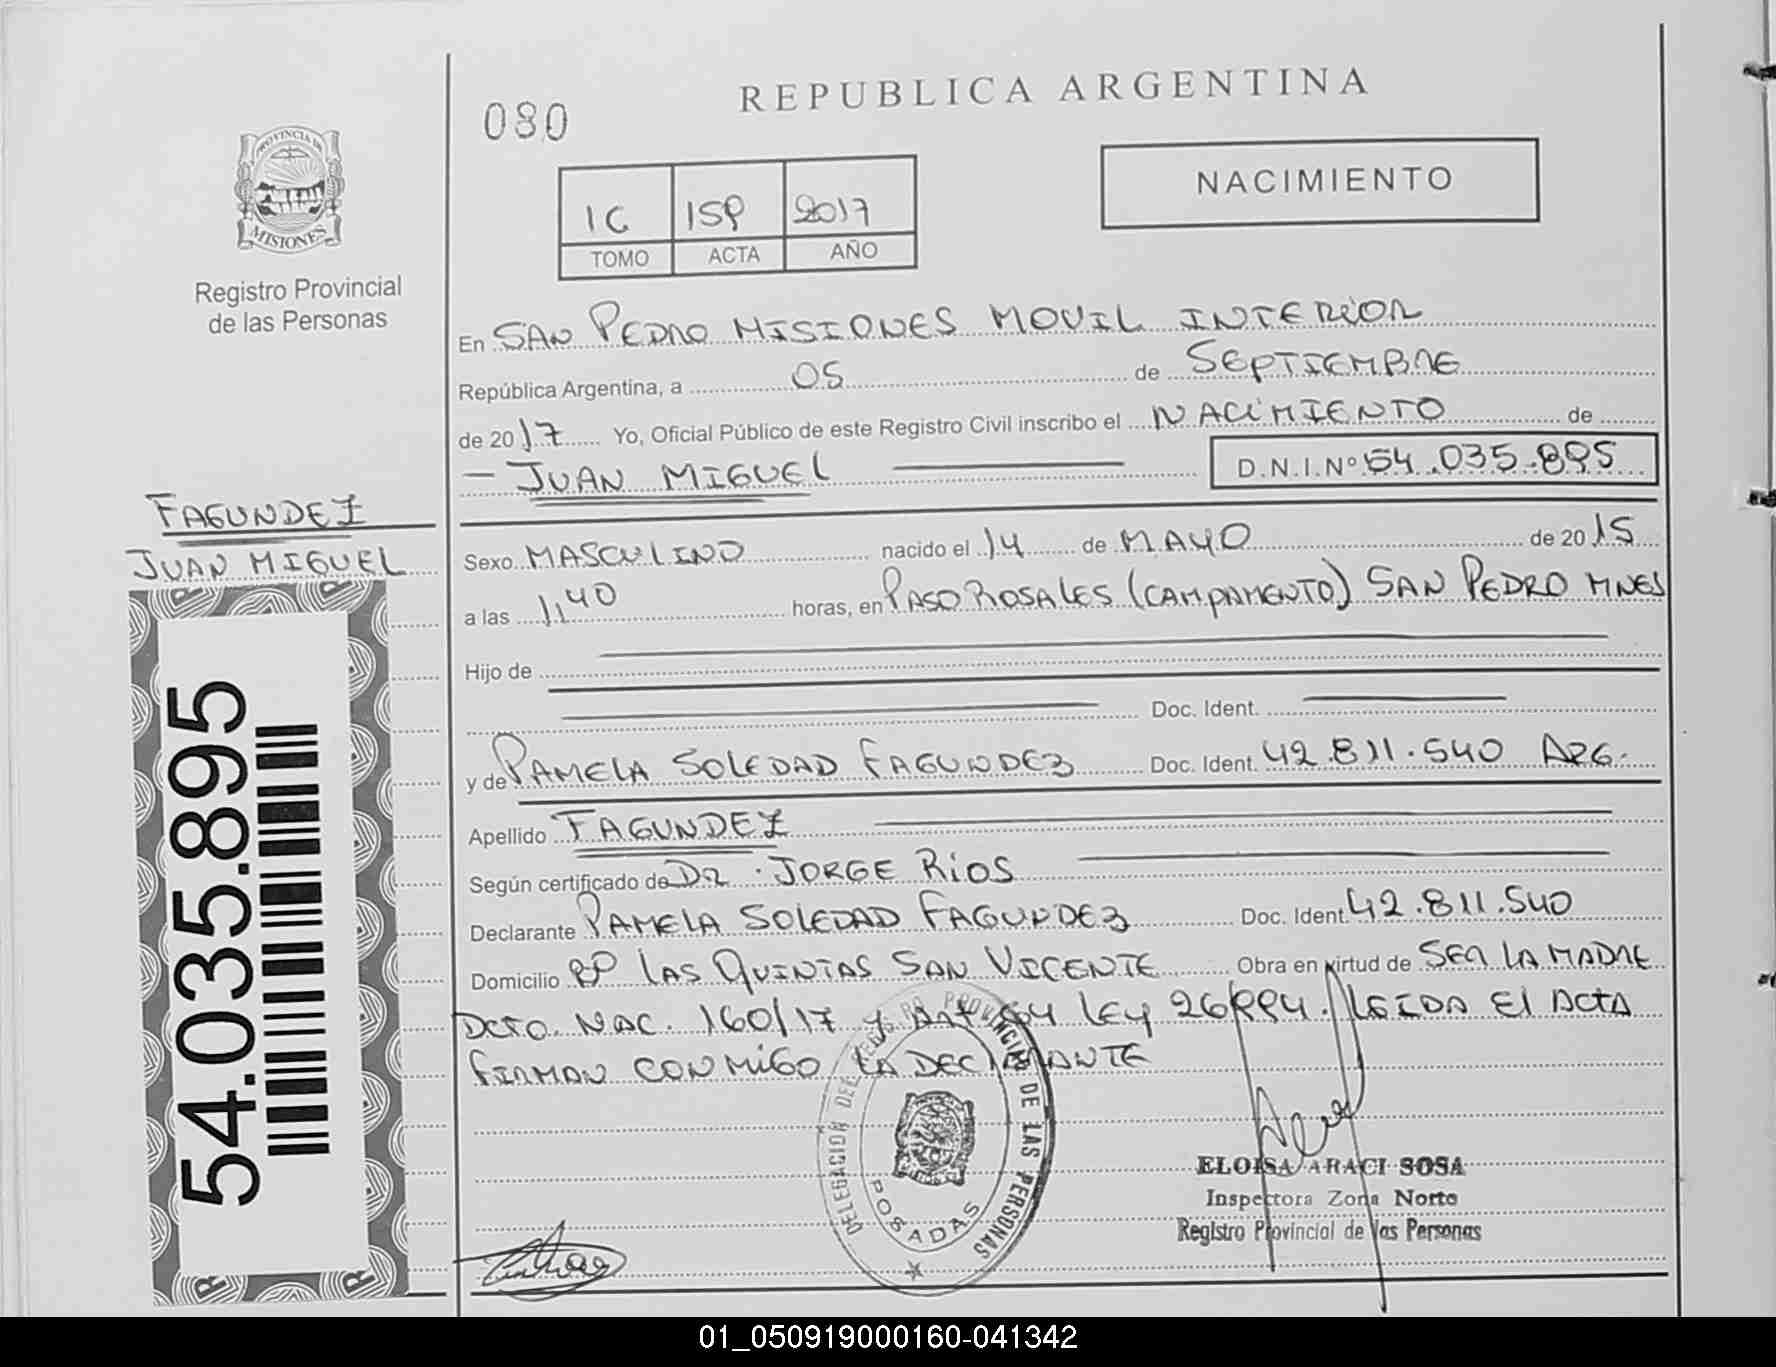 REPUBLICA ARGENTINA
080
PROVINCIA DE
MISIONES
Registro Provincial
de las Personas
NACIMIENTO
2017
TOMO ACTA AÑO
En SAN PEDRO MISIONES MOVIL INTERIOR
República Argentina, a 05 de SEPTIEMBRE
de 2017 Yo, Oficial Público de este Registro Civil inscribo el NACIMIENTO de
JUAN MIGUEL
D.N.I.Nº 54.035.895
FAGUNDEZ
JUAN MIGUEL
54.035.895
Sexo MASCULINO nacido el 14 de MAYO de 2015
a las 11,40 horas, en PASO ROSALES (CAMPAMENTO) SAN PEDRO MNES
Hijo de
Doc. Ident.
y de PAMELA SOLEDAD FAGUNDEZ Doc. Ident. 42.811.540 ARG.
Apellido FAGUNDEZ
Según certificado de DR. JORGE RIOS
Declarante PAMELA SOLEDAD FAGUNDEZ Doc. Ident. 42.811.540
Domicilio Bº LAS QUINTAS SAN VICENTE Obra en virtud de SER LA MADRE
DCTO. NAC. 160/17 y ART 64 LEY 26994. LEIDA El ACTA
FIRMAN CONMIGO LA DECLARANTE
DELEGACION DEL REGISTRO PROVINCIAL DE LAS PERSONAS
POSADAS
ELOISA ARACI SOSA
Inspectora Zona Norte
Registro Provincial de las Personas
01_050919000160-041342